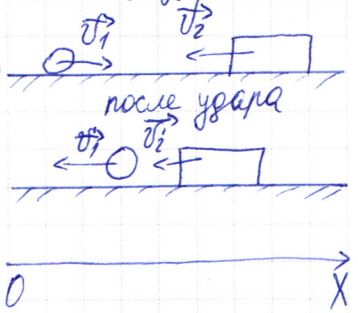 v⃗₁ v⃗₂
после удара
v⃗₁' v⃗₂'
O X